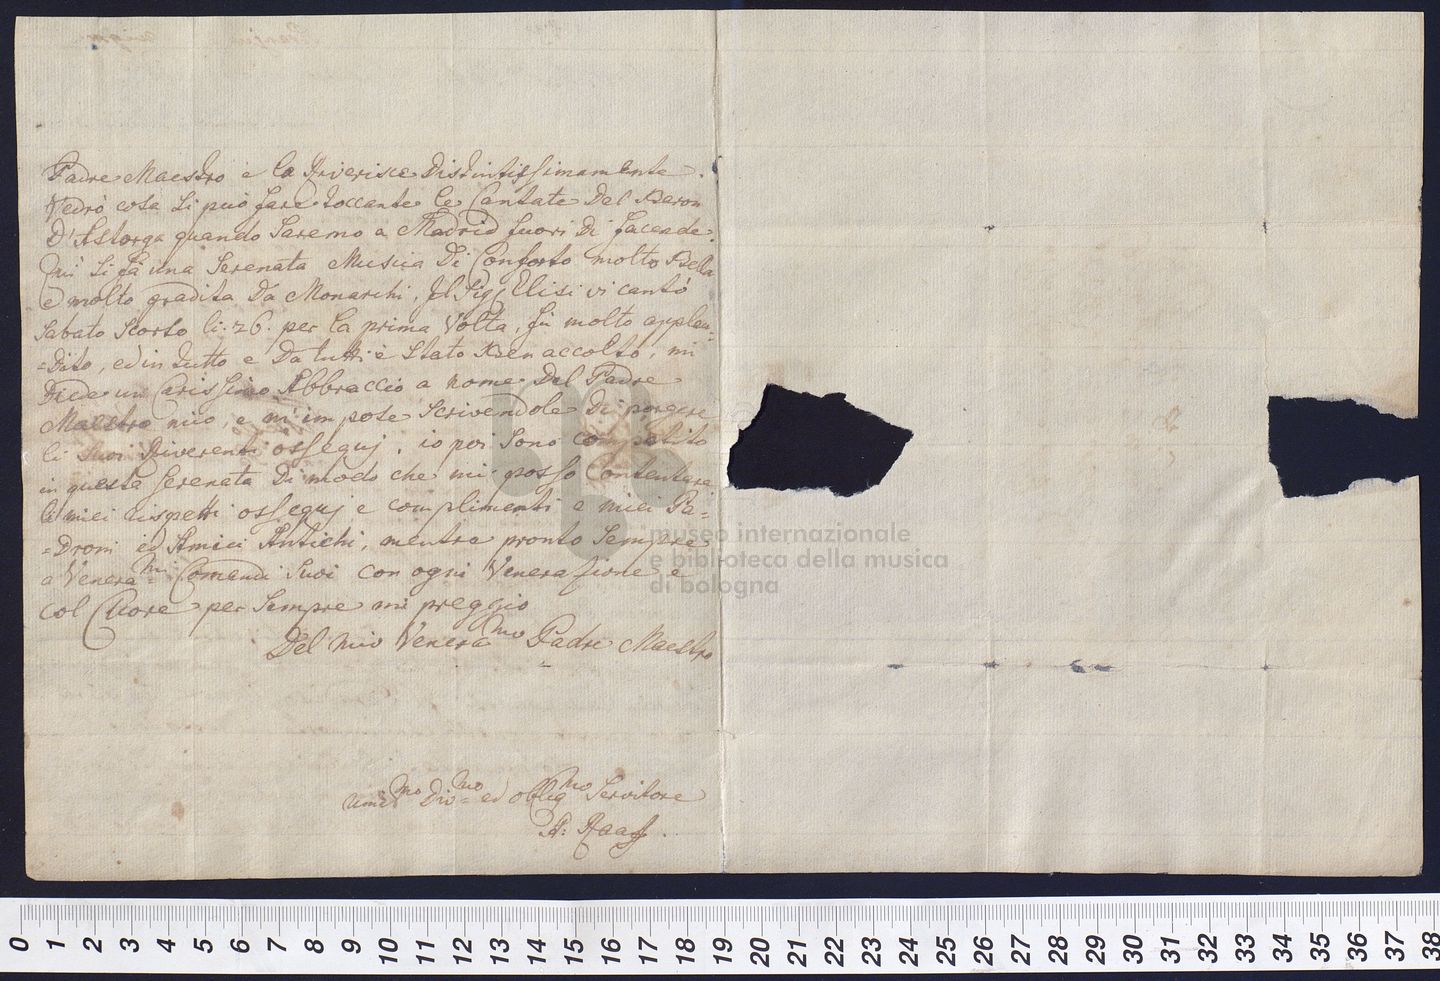 Padre Maestro e la riverisce distintissimamente.
Vedrò cosa si può fare toccante le Cantate del Baron
D'Astorga quando saremo a Madrid fuori di facende.
Qui si fà una Serenata Musica di Conforto molto Bella
e molto gradita da Monarchi, il Sigr Elisi vi cantò
Sabato scorso li: 26. per la prima Volta, fù molto applau=
=dito, ed in tutto e da tutti è stato Ben accolto, mi
Diede un Carissimo Abbraccio a nome Del Padre
Maestro mio, e m'impose scrivendole di porgere
li suoi Riverenti ossequj, io poi sono compatito
in questa Serenata di modo che mi posso Contentare
li miei rispetti ossequj e complimenti e miei Pa=
=droni ed Amici Antichi, mentre pronto sempre
a Venera.mi Comandi Suoi con ogni Venerazione e
col Cuore per sempre mi preggio
Del mio Venera.mo Padre Maestro
Umil.mo Div.mo ed obblig.mo Servitore
A: Raaff.
museo internazionale
e biblioteca della musica
di bologna
0 1 2 3 4 5 6 7 8 9 10 11 12 13 14 15 16 17 18 19 20 21 22 23 24 25 26 27 28 29 30 31 32 33 34 35 36 37 38